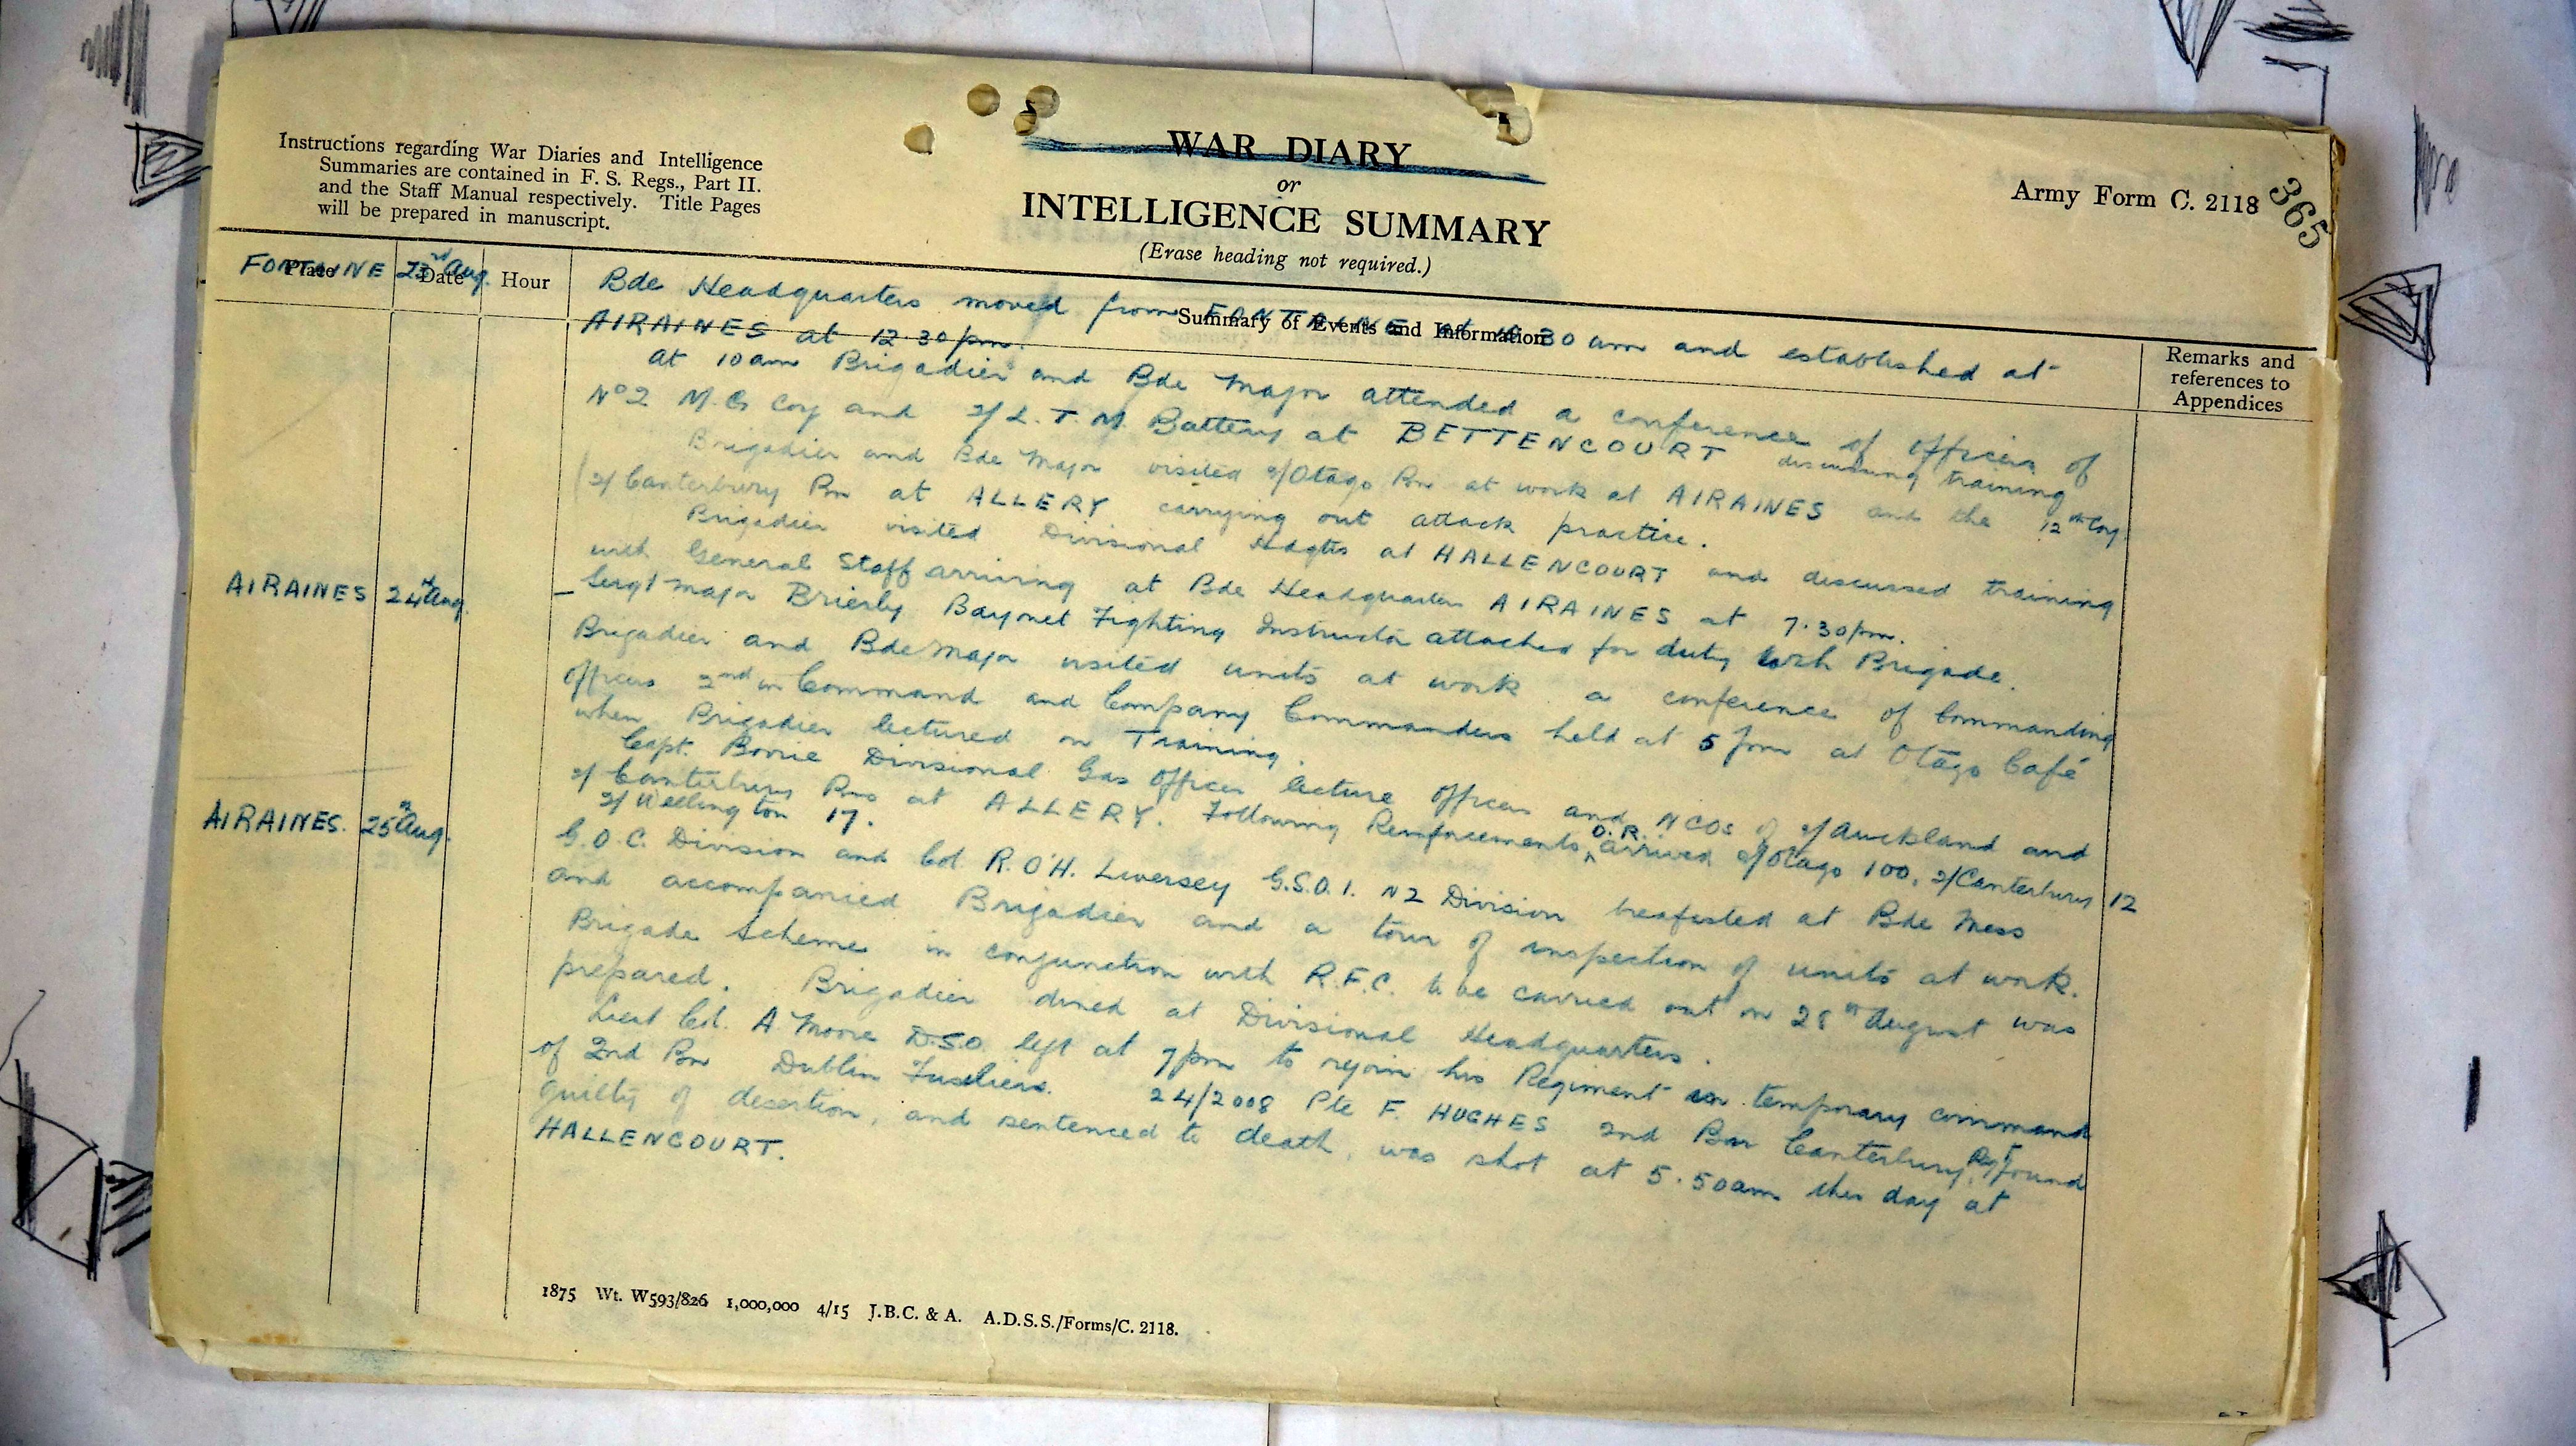 Instructions regarding War Diaries and Intelligence
Summaries are contained in F. S. Regs., Part II.
and the Staff Manual respectively. Title Pages
will be prepared in manuscript.
WAR DIARY
or
INTELLIGENCE SUMMARY
(Erase heading not required.)
Army Form C. 2118
365
Place
Date
Hour
Summary of Events and Information
Remarks and
references to
Appendices
FONTAINE 23rd Aug.
Bde Headquarters moved from FONTAINE at 30 am and established at
AIRAINES at 12.30 pm.
At 10am Brigadier and Bde Major attended a conference of officers of
No 2 M.G. Coy and 2/L.T.M. Battery at BETTENCOURT discussing training
Brigadier and Bde Major visited 2/Otago Bn at work at AIRAINES and the 12th Coy
(2/Canterbury Bn at ALLERY carrying out attack practice.
Brigadier visited Divisional Hdqtrs at HALLENCOURT and discussed training
with General Staff arriving at Bde Headquarters AIRAINES at 7.30pm.
AIRAINES 24th Aug.
Sergt Major Brierly Bayonet Fighting Instructor attached for duty with Brigade.
Brigadier and Bde Major visited units at work a conference of Commanding
Officers 2nd in Command and Company Commanders held at 5 pm at Otago Café
when Brigadier lectured on Training.
Capt. Borrie Divisional Gas Officer lecture officers and NCOs of 2/Auckland and
2/Canterbury Bns at ALLERY. Following Reinforcements O.R. arrived 2/Otago 100, 2/Canterbury 12
2/Wellington 17.
AIRAINES. 25th Aug.
G.O.C. Division and Col R. O'H. Livesey G.S.O.1. NZ Division breafasted at Bde Mess
and accompanied Brigadier and a tour of inspection of units at work.
Brigade Scheme in conjunction with R.F.C. to be carried out on 28th August was
prepared. Brigadier dined at Divisional Headquarters.
Lieut Col. A. Moore D.S.O. left at 7pm to rejoin his Regiment in temporary command
of 2nd Bn Dublin Fusiliers. 24/2008 Pte F. HUGHES 2nd Bn Canterbury Regt found
guilty of desertion, and sentenced to death, was shot at 5.50am this day at
HALLENCOURT.
1875 Wt. W593/826 1,000,000 4/15 J.B.C. & A. A.D.S.S./Forms/C. 2118.